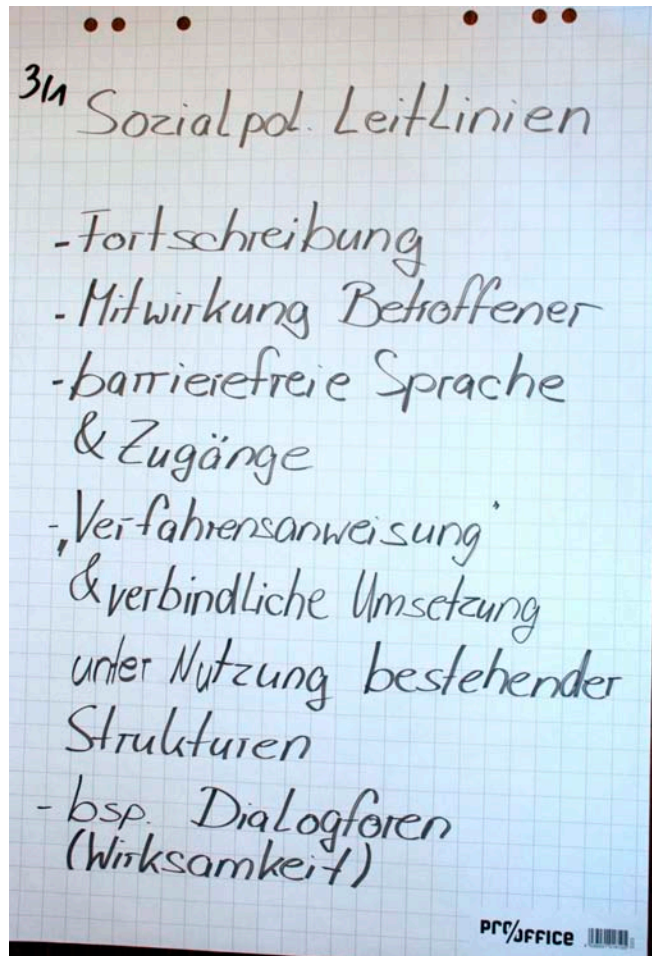 3/1 Sozialpol. Leitlinien
- Fortschreibung
- Mitwirkung Betroffener
- barrierefreie Sprache
& Zugänge
- ‚Verfahrensanweisung‘
& verbindliche Umsetzung
unter Nutzung bestehender
Strukturen
- bsp. Dialogforen
(Wirksamkeit)
PRO/OFFICE